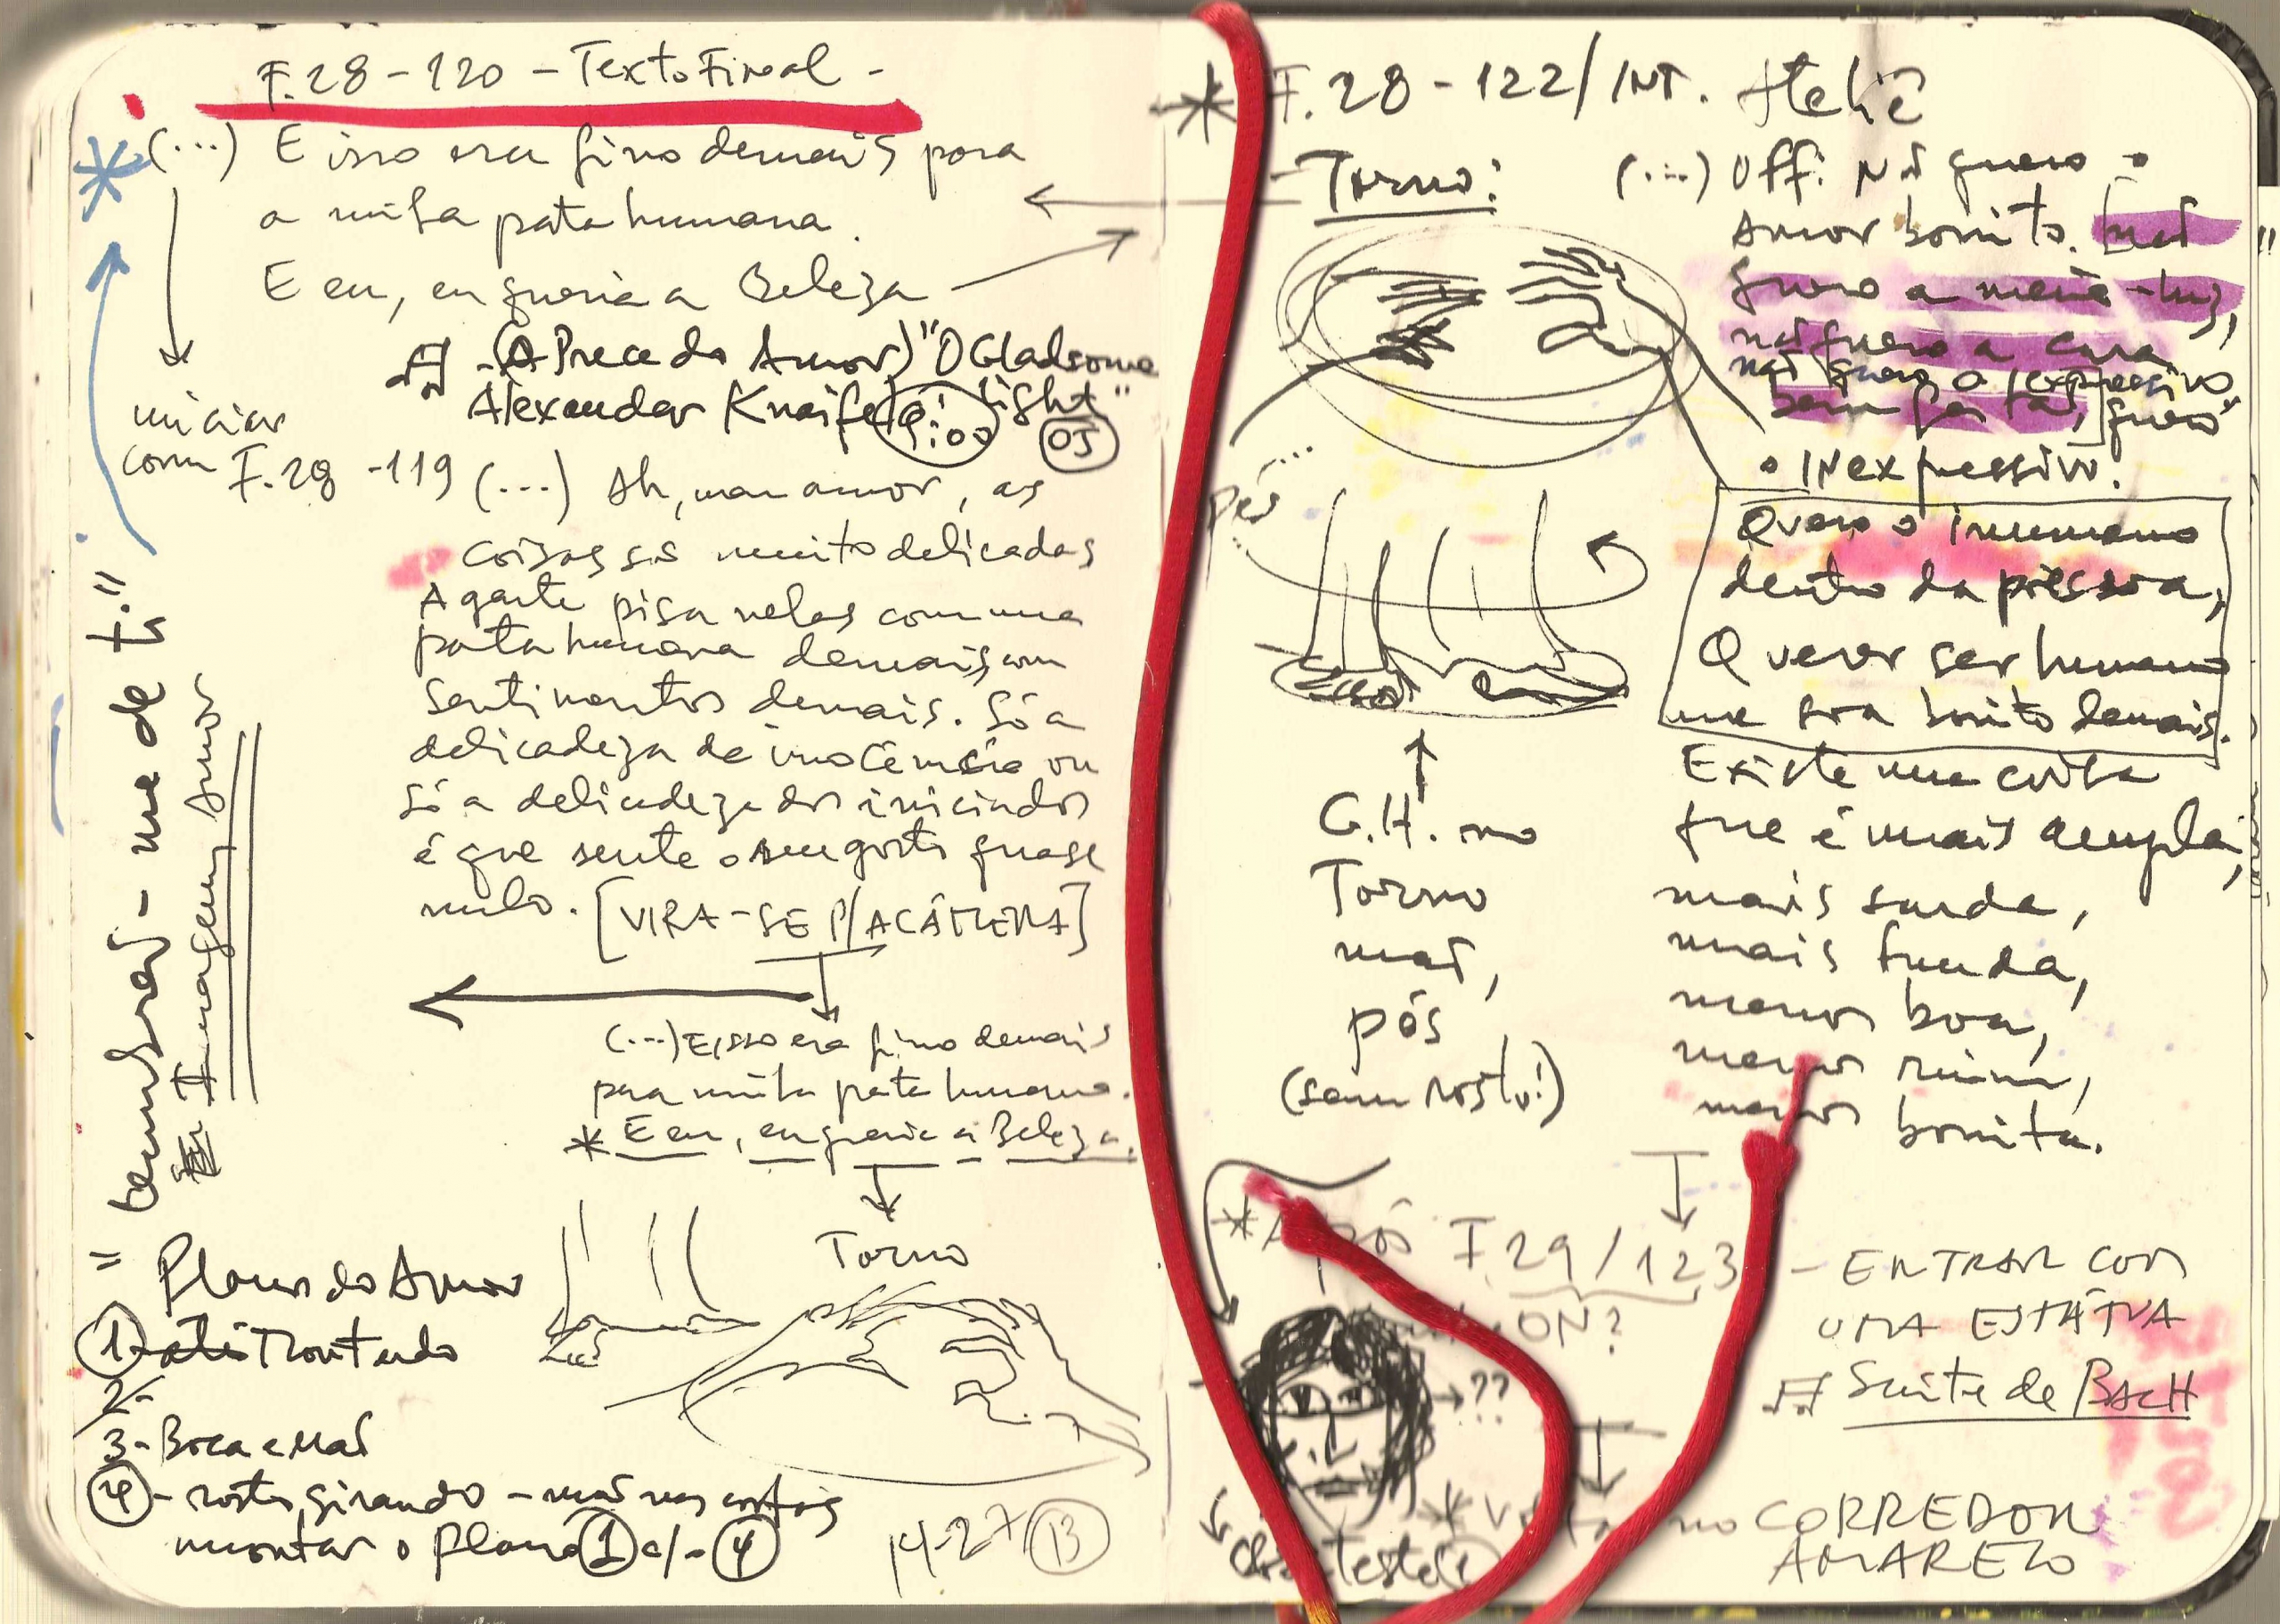 F.28-120 - Texto Final -
(...) E isso era fino demais para
a minha pata humana.
E eu, eu queria a Beleza
(A Prece do Amor) "O Gladsome
Alexander Knaifel light"
9:00
05
iniciar
com F.28 -119 (...) Ah, meu amor, as
coisas são muito delicadas
A gente pisa nelas com uma
pata humana demais, com
sentimentos demais. Só a
delicadeza da inocência ou
só a delicadeza dos iniciados
é que sente o seu gosto quase
nulo. [VIRA-SE P/ A CÂMERA]
(...) E isso era fino demais
para minha pata humana.
* E eu, eu queria a Beleza.
Torno
me de ti."
Imagem Amor
Planos do Amor
1- Montando
2-
3- Boca e Mão
4 - rosto girando - mão nas costas
montar o plano 1 c/ 4
14-27 13
* F.28 - 122/INT. Ateliê
Torno:
(...) Off: Não quero o
Amor bonito. [não
quero a meia-luz,
não quero a cara
bem feita,
não quero o expressivo
quero
o INexpressivo.
Quero o inumano
dentro da pessoa;
Querer ser humano
me soa bonito demais.
Existe uma coisa
que é mais ampla,
mais surda,
mais funda,
menos boa,
menos ruim,
menos bonita.
pés...
G.H. no
Torno
mão,
pés
(sem rosto!)
* Após F.29/123
ON?
- ENTRAR COM
UMA ESTÁTUA
Suite de BACH
→??
no CORREDOR
AMARELO